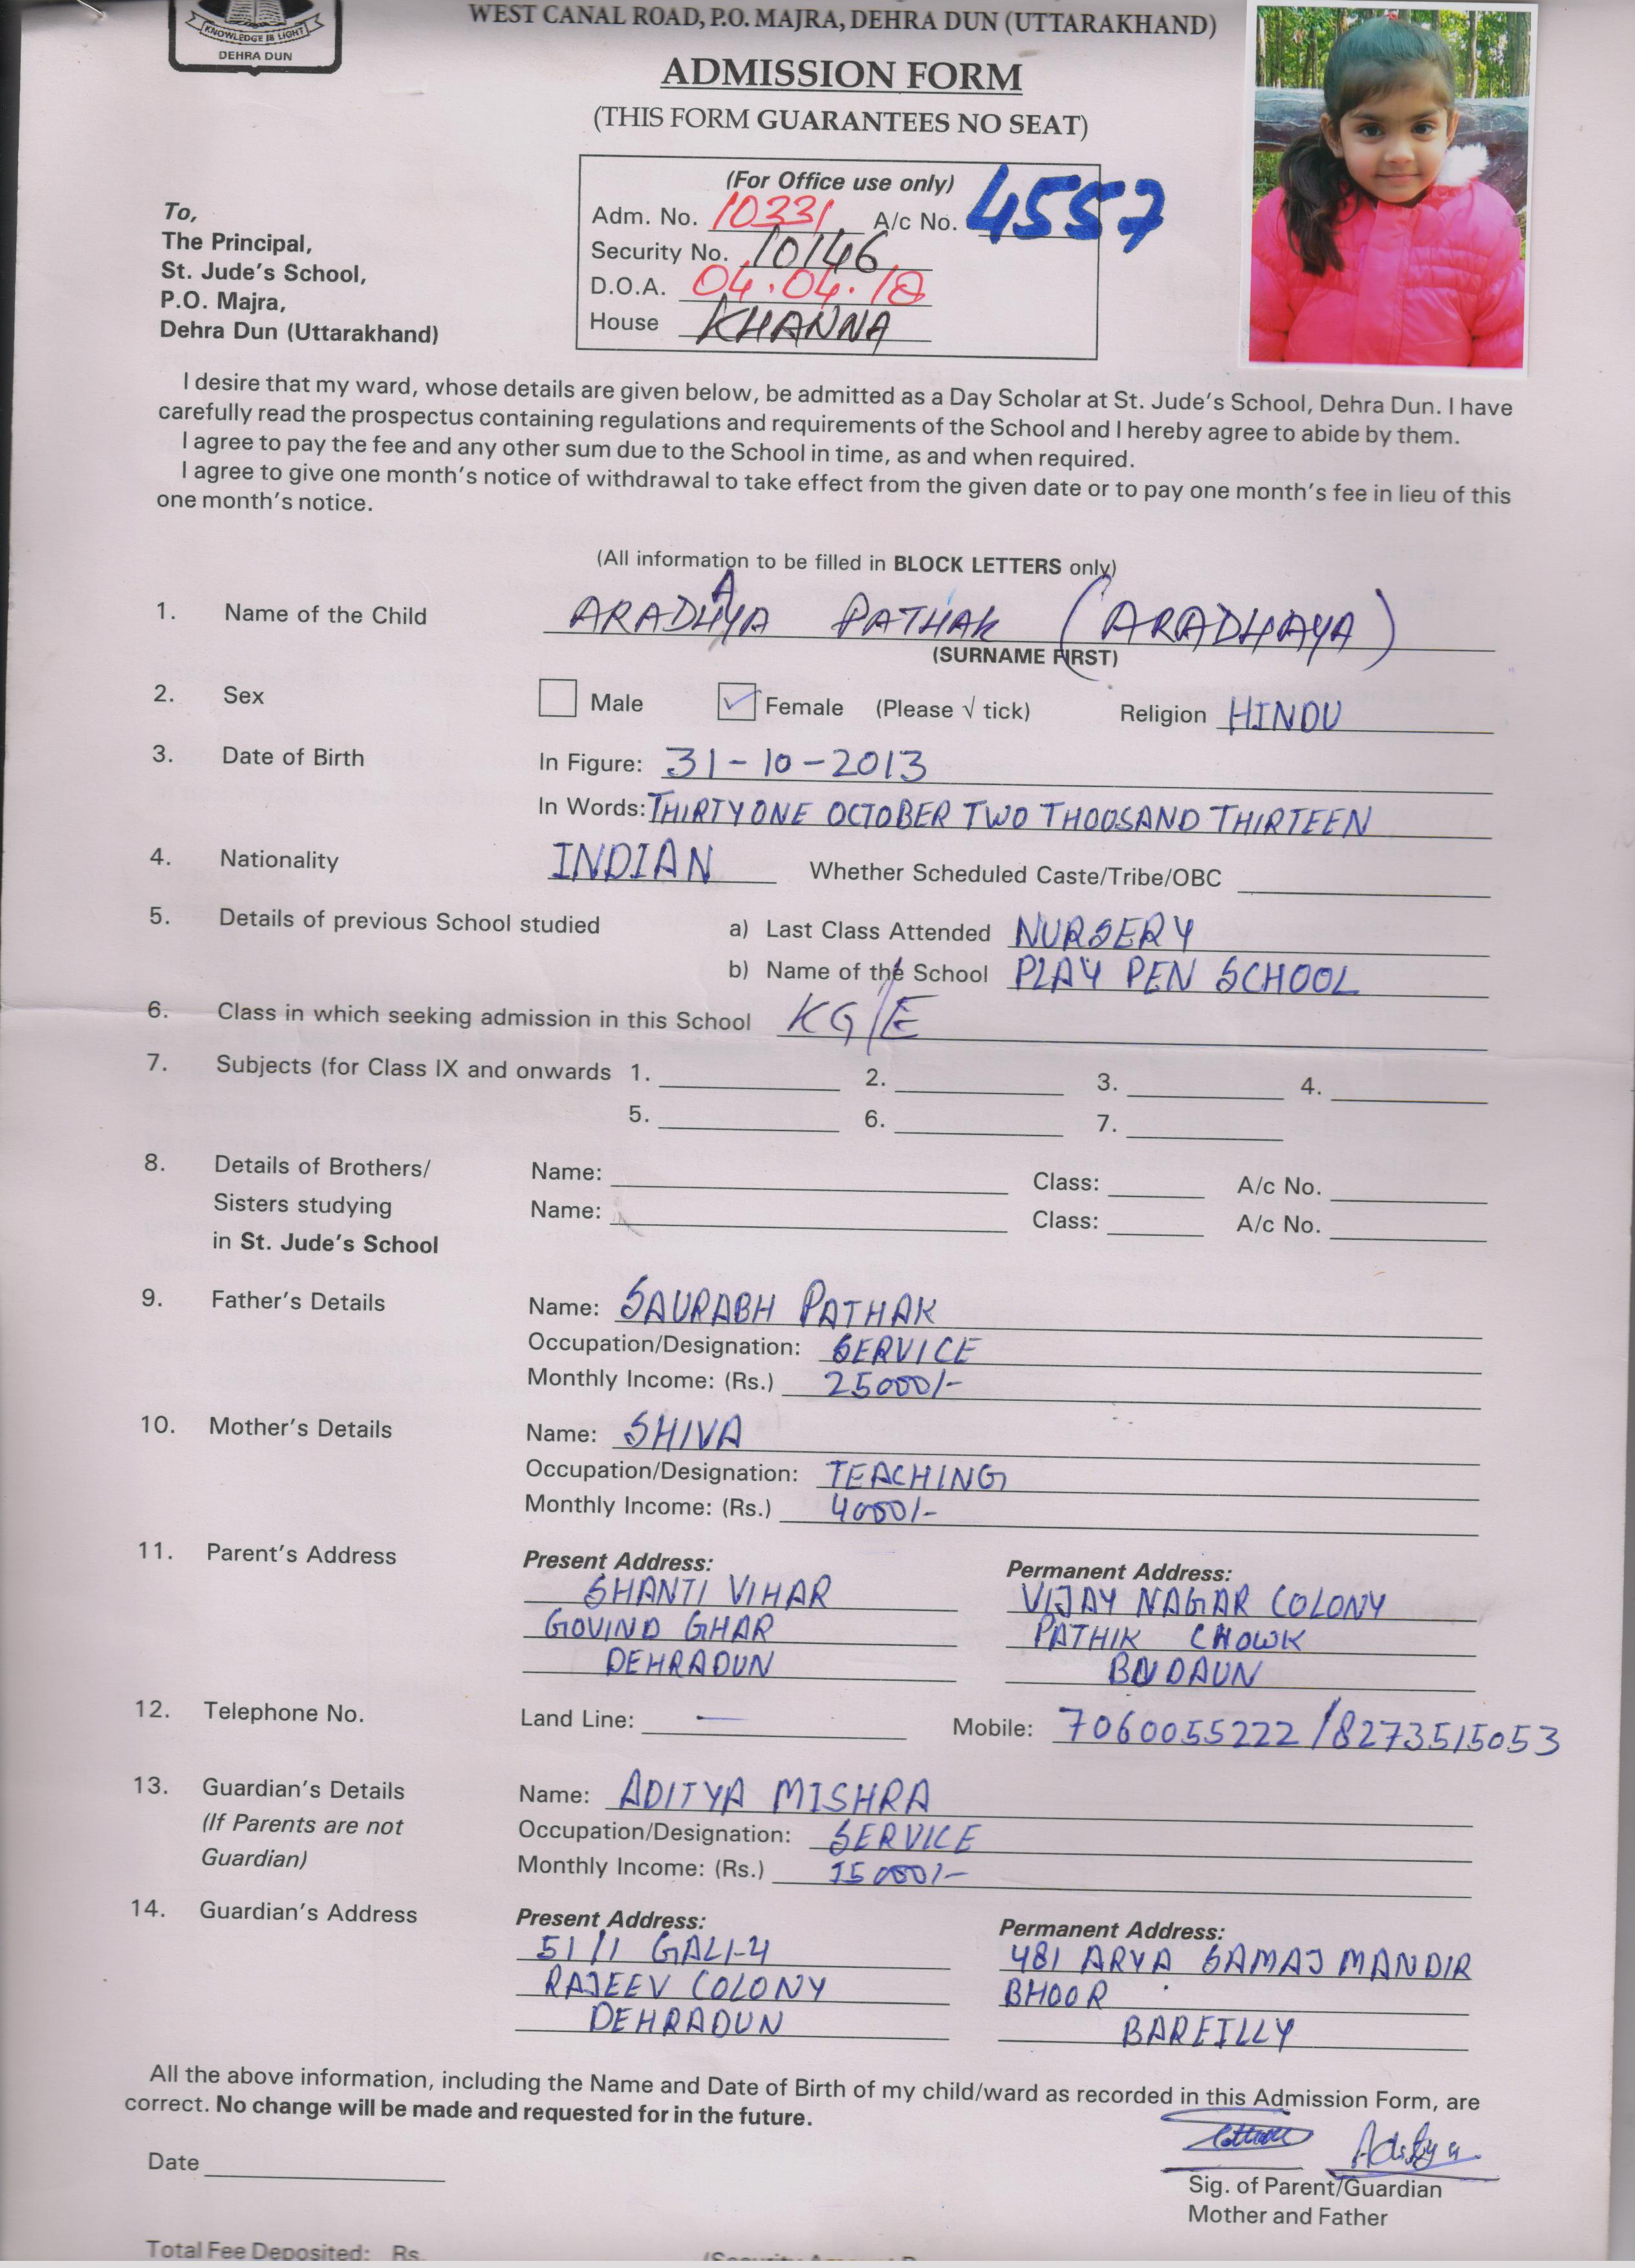 KNOWLEDGE IS LIGHT
DEHRA DUN
WEST CANAL ROAD, P.O. MAJRA, DEHRA DUN (UTTARAKHAND)
ADMISSION FORM
(THIS FORM GUARANTEES NO SEAT)
(For Office use only)
Adm. No. 10331 A/c No. 4557
Security No. 10146
D.O.A. 04.04.18
House KHANNA
To,
The Principal,
St. Jude's School,
P.O. Majra,
Dehra Dun (Uttarakhand)
I desire that my ward, whose details are given below, be admitted as a Day Scholar at St. Jude's School, Dehra Dun. I have
carefully read the prospectus containing regulations and requirements of the School and I hereby agree to abide by them.
I agree to pay the fee and any other sum due to the School in time, as and when required.
I agree to give one month's notice of withdrawal to take effect from the given date or to pay one month's fee in lieu of this
one month's notice.
(All information to be filled in BLOCK LETTERS only)
1. Name of the Child ARADHAYA PATHAK (ARADHAYA)
(SURNAME FIRST)
2. Sex Male ✓ Female (Please √ tick) Religion HINDU
3. Date of Birth In Figure: 31-10-2013
In Words: THIRTY ONE OCTOBER TWO THOUSAND THIRTEEN
4. Nationality INDIAN Whether Scheduled Caste/Tribe/OBC
5. Details of previous School studied a) Last Class Attended NURSERY
b) Name of the School PLAY PEN SCHOOL
6. Class in which seeking admission in this School KG/E
7. Subjects (for Class IX and onwards 1. 2. 3. 4.
5. 6. 7.
8. Details of Brothers/ Name: Class: A/c No.
Sisters studying Name: Class: A/c No.
in St. Jude's School
9. Father's Details Name: SAURABH PATHAK
Occupation/Designation: SERVICE
Monthly Income: (Rs.) 25000/-
10. Mother's Details Name: SHIVA
Occupation/Designation: TEACHING
Monthly Income: (Rs.) 4000/-
11. Parent's Address Present Address: Permanent Address:
SHANTI VIHAR VIJAY NAGAR COLONY
GOVIND GHAR PATHIK CHOWK
DEHRADUN BUDAUN
12. Telephone No. Land Line: — Mobile: 7060055222/8273515053
13. Guardian's Details Name: ADITYA MISHRA
(If Parents are not Occupation/Designation: SERVICE
Guardian) Monthly Income: (Rs.) 15000/-
14. Guardian's Address Present Address: Permanent Address:
51/1 GALI-4 481 ARYA SAMAJ MANDIR
RAJEEV COLONY BHOOR
DEHRADUN BAREILLY
All the above information, including the Name and Date of Birth of my child/ward as recorded in this Admission Form, are
correct. No change will be made and requested for in the future.
Aditya
Date
Sig. of Parent/Guardian
Mother and Father
Total Fee Deposited: Rs.